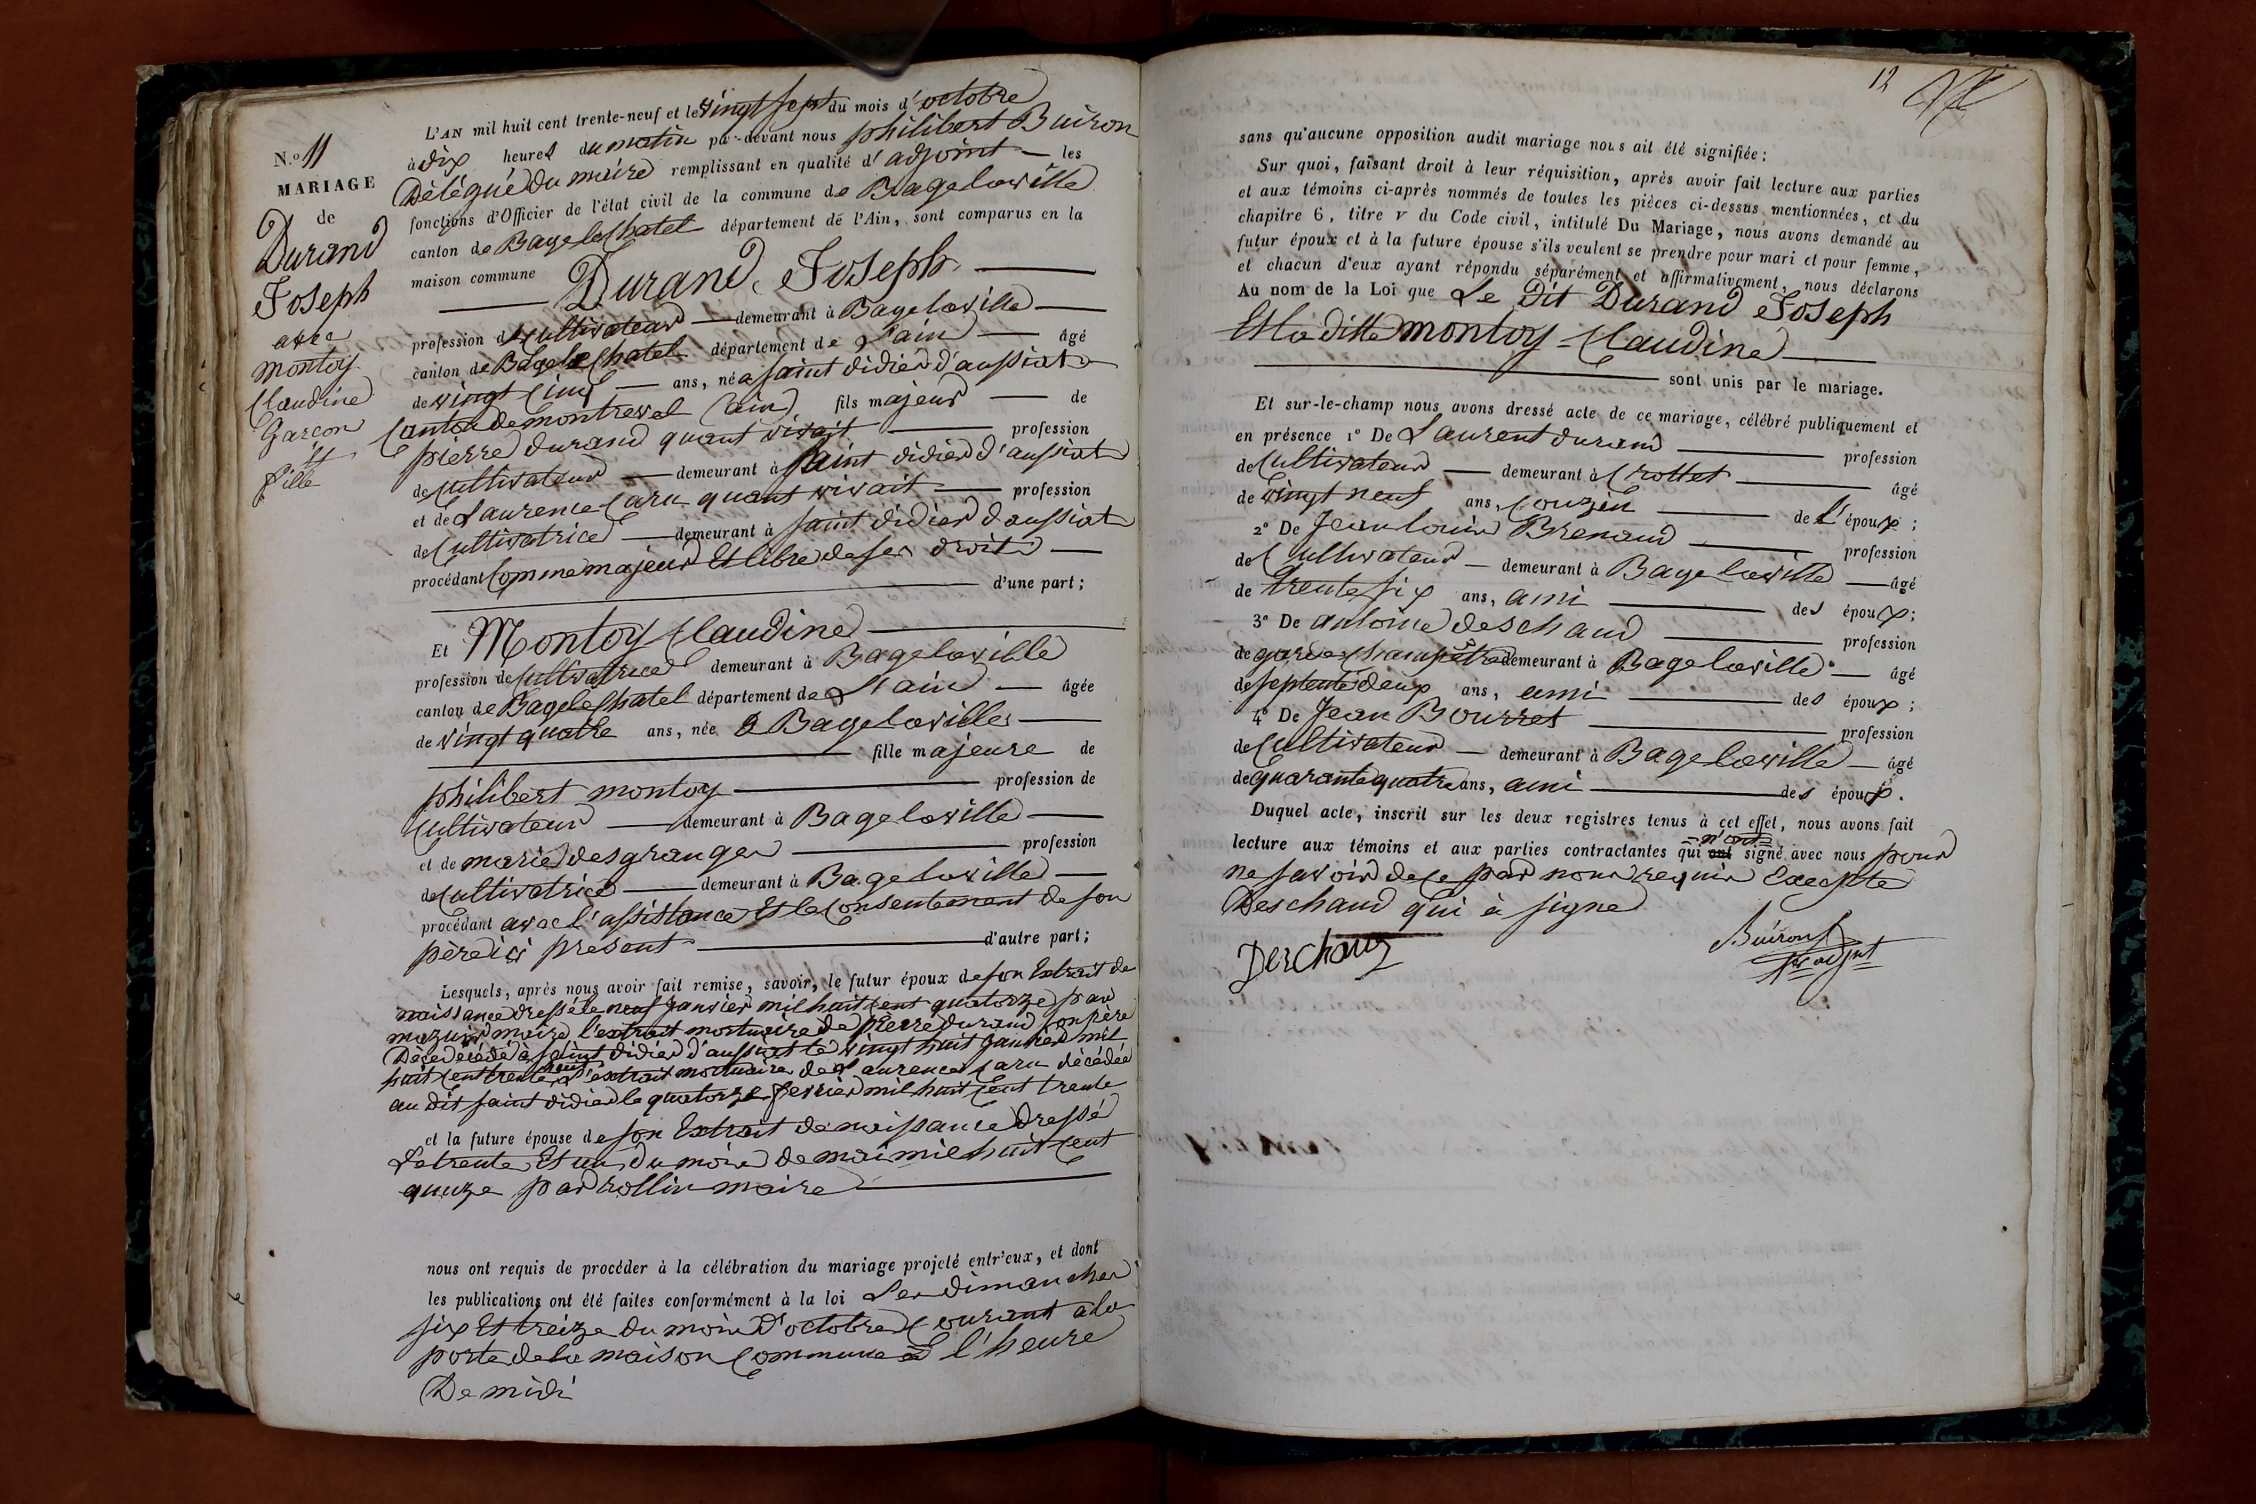 N.º 11
MARIAGE
de
Durand
Joseph
avec
montoy
Claudine
Garcon
et
fille
L'AN mil huit cent trente-neuf et le vingt sept du mois d'octobre
à dix heures du matin par-devant nous philibert Buiron
Délégué du maire remplissant en qualité d'adjoint les
fonctions d'Officier de l'état civil de la commune de Bagelaville
canton de Bagelechatel département de l'Ain, sont comparus en la
maison commune Durand Joseph
profession de cultivateur demeurant à Bagelaville
canton de Bagelechatel département de L'ain âgé
de vingt cinq ans, né a saint didier d'aussiat
canton de montreval (ain) fils majeur de
pierre durand quant vivait profession
de cultivateur demeurant à saint didier d'aussiat
et de Laurence Caru quant vivait profession
de cultivatrice demeurant à saint didier d'aussiat
procédant comme majeur Et libre de ses droits
d'une part;
Et Montoy Claudine
profession de cultivatrice demeurant à Bagelaville
canton de Bagelechatel département de L'ain âgée
de vingt quatre ans, née a Bagelaville
fille majeure de
philibert montoy profession de
cultivateur demeurant à Bagelaville
et de marie desgranges profession
de cultivatrice demeurant à Bagelaville
procédant avec l'assistance Et le consentement de son
père ici présent d'autre part;
Lesquels, après nous avoir fait remise, savoir, le futur époux de son Extrait de
naissance dressé le neuf janvier mil huit cent quatorze par
mazuir maire l'extrait mortuaire de pierre durand son père
décédé à saint didier d'aussiat le vingt huit janvier mil
huit cent trente neuf L'extrait mortuaire de Laurence Caru décédée
au dit saint didier le quatorze fevrier mil huit cent trente
et la future épouse de son Extrait de naissance dressé
Le trente Et un du mois de mai mil huit cent
quinze par rollin maire
nous ont requis de procéder à la célébration du mariage projeté entr'eux, et dont
les publications ont été faites conformément à la loi Les dimanches
six Et treize du mois d'octobre courant a la
porte de la maison commune à l'heure
De midi
12
sans qu'aucune opposition audit mariage nous ait été signifiée;
Sur quoi, faisant droit à leur réquisition, après avoir fait lecture aux parties
et aux témoins ci-après nommés de toutes les pièces ci-dessus mentionnées, et du
chapitre 6, titre v du Code civil, intitulé Du Mariage, nous avons demandé au
futur époux et à la future épouse s'ils veulent se prendre pour mari et pour femme,
et chacun d'eux ayant répondu séparément et affirmativement, nous déclarons
Au nom de la Loi que Le Dit Durand Joseph
Et la ditte montoy Claudine
sont unis par le mariage.
Et sur-le-champ nous avons dressé acte de ce mariage, célébré publiquement et
en présence 1º De Laurent durand profession
de cultivateur demeurant à Crottet âgé
de vingt neuf ans, couzin de L'époux;
2º De Jean louis Brenaud profession
de Cultivateur demeurant à Bagelaville âgé
de trente six ans, ami des époux;
3º De antoine deschaud profession
de garde champêtre demeurant à Bagelaville âgé
de septente deux ans, ami des époux;
4º De Jean Bourret profession
de Cultivateur demeurant à Bagelaville âgé
de quarante quatre ans, ami des époux.
Duquel acte, inscrit sur les deux registres tenus à cet effet, nous avons fait
lecture aux témoins et aux parties contractantes qui n'ont signé avec nous pour
ne savoir de ce par nous requis Excepté
Deschaud qui à signé
Deschaud
Buiron
adjnt